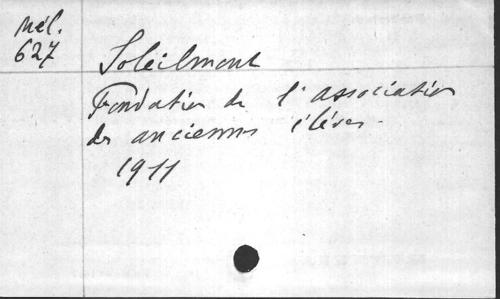 Mél.
627
Soleilmont
Fondation de l'association
des anciennes élèves.
1911